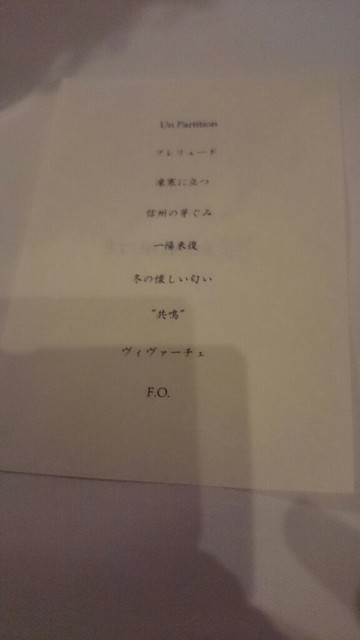 Un Partition
プレリュード
凍寒に立つ
信州の芽ぐみ
一陽来復
冬の懐しい匂い
"共鳴"
ヴィヴァーチェ
F.O.